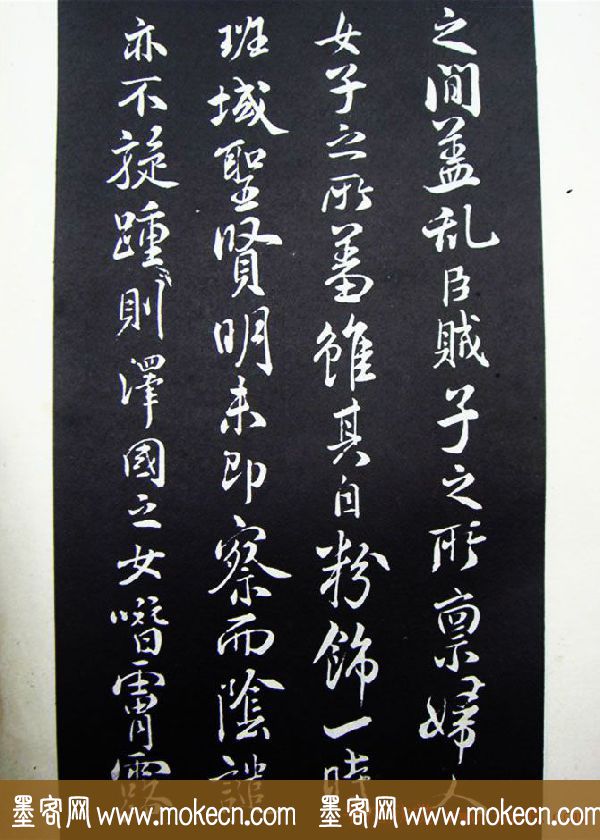 之間蓋乱臣賊子之所禀婦人
女子之所蓄雖其自粉飾一時
班域聖賢明未即察而陰譴
亦不旋踵則澤國之女噆膏露
墨客网 www.mokecn.com 墨客网 www.mokecn.com